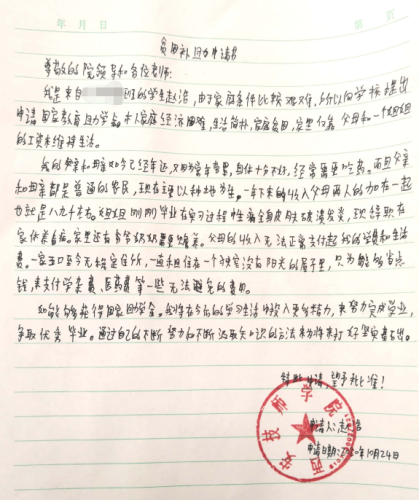 年 月 日 第 页
贫困补助申请书
尊敬的院领导和各位老师:
我是来自 班的学生赵 ,由于家庭条件比较艰难,所以向学校提出
申请国家教育助学金。本人家庭经济困难,生活简朴,家庭贫困,家里仅靠父母和一个姐姐
的工资来维持生活。
我的父亲和母亲如今已经年迈,又因为常年 ,身体十分不好,经常需要吃药。而且父亲
和母亲都是普通的农民,现在主要以种地为生。一年下来的收入父母两人的加在一起
也就是八九千左右。姐姐刚刚毕业在实习过程 全身皮肤 发炎,现辞职在
家休养看病。家里还有爷爷奶奶需要赡养。父母的收入无法正常支付起我的学费和生活
费。一家五口至今无稳定住所,一直租住在一个狭窄没有阳光的屋子里,只为能够省点
钱,来支付学杂费、医药费等一些无法避免的费用。
如能够获得国家助学金。我将在今后的学习生活中投入更多精力,来努力完成学业,
争取优秀毕业。通过自己的不断努力和不断汲取知识的方法来为将来打好坚实基石。
特此申请,望予批准!
申请人:赵
申请日期: 年10月24日
西安技师学院